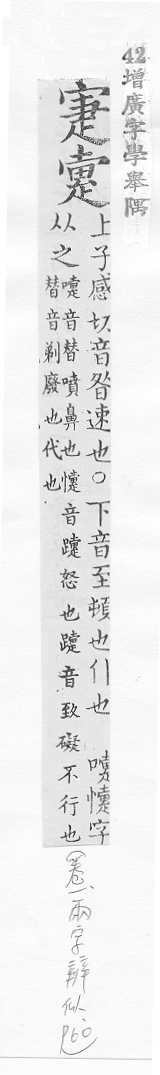 42增廣字學舉隅
寁疐
上子感切音昝速也○下音至頓也仆也 嚏懥字
从之嚏音替噴鼻也懥音躓怒也躓音致礙不行也
替音剃廢也代也
卷一、兩字辭似、P60